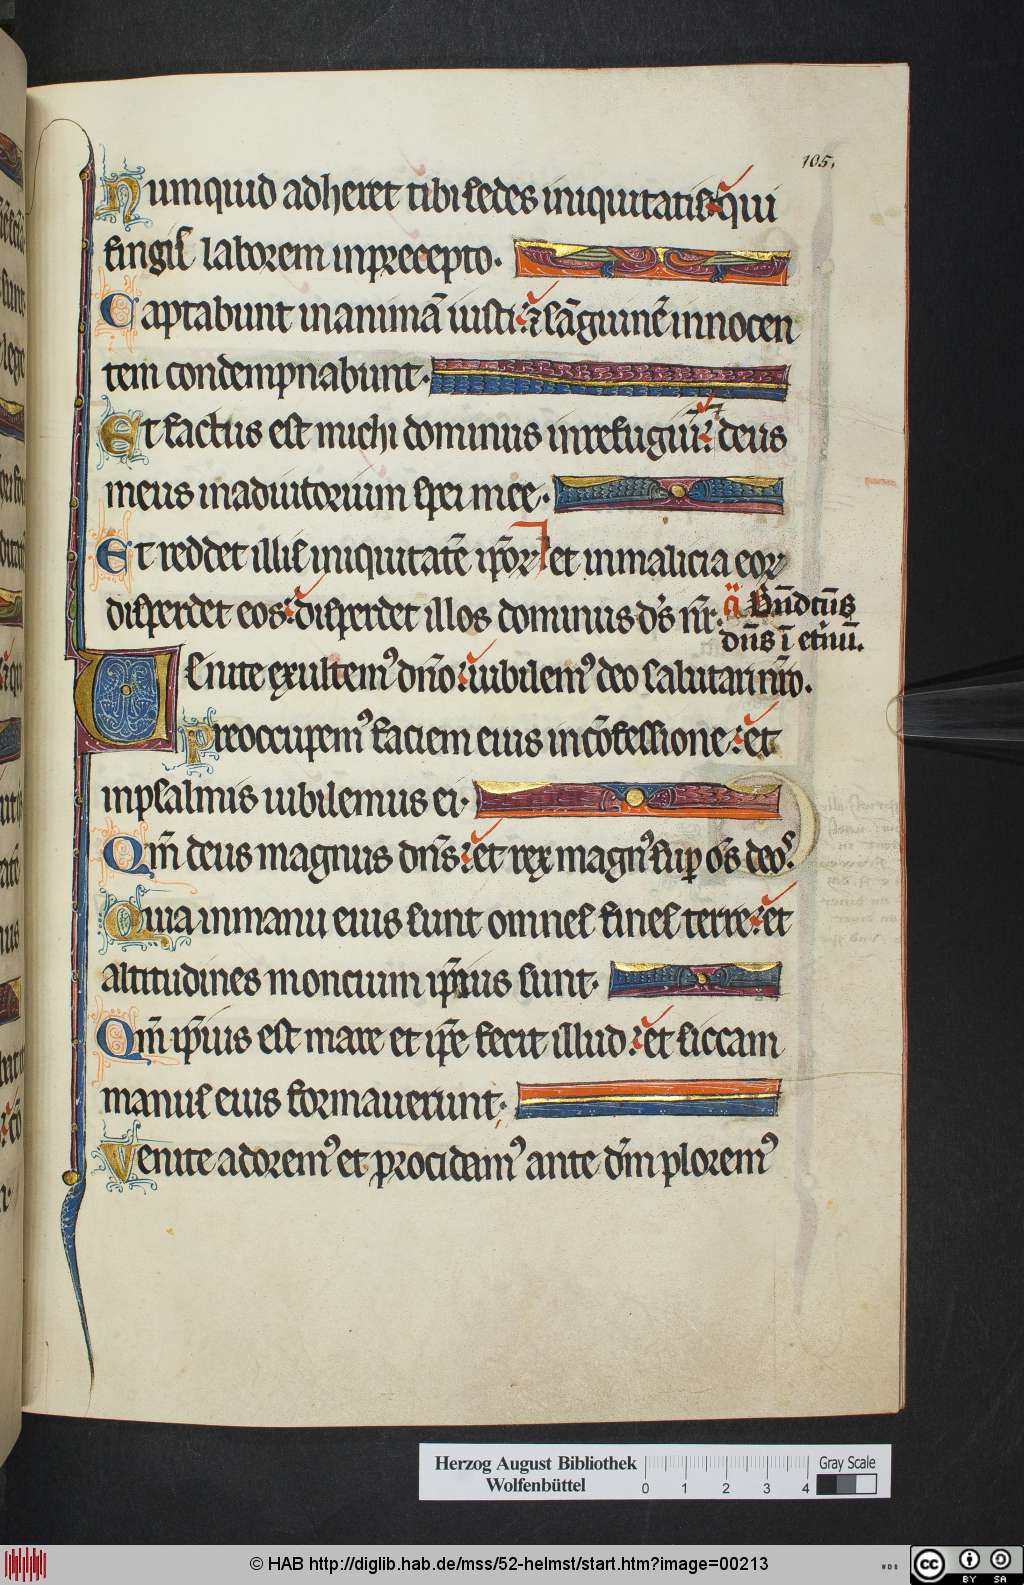 105.
Numquid adheret tibi sedes iniquitatis: qui
fingis laborem inprecepto.
Captabunt inanimā iusti: ⁊ sāguinē innocen
tem condempnabunt.
Et factus est michi dominus inrefugiū: deus
meus inadiutorium spei mee.
Et reddet illis iniquitatē ip̄oꝝ et inmalicia eoꝝ
disperdet eos: disperdet illos dominus ds̄ nr̄.
a Bn̄dctus
dn̄s ī etnū.
Venite exultemꝰ dn̄o: iubilemꝰ deo salutari nr̄o.
preoccupemꝰ faciem eius incōfessione: et
inpsalmis iubilemus ei.
Qm̄ deus magnus dn̄s: et rex magnꝰ suꝑ om̄s deos.
Quia inmanu eius sunt omnes fines terre: et
altitudines moncium ip̄ius sunt.
Qm̄ ip̄ius est mare et ip̄e fecit illud: et siccam
manus eius formauerunt.
Venite adoremꝰ et procidamꝰ ante dm̄ ploremꝰ
Herzog August Bibliothek
Wolfenbüttel
0 1 2 3 4
Gray Scale
© HAB http://diglib.hab.de/mss/52-helmst/start.htm?image=00213
WDB
cc BY SA